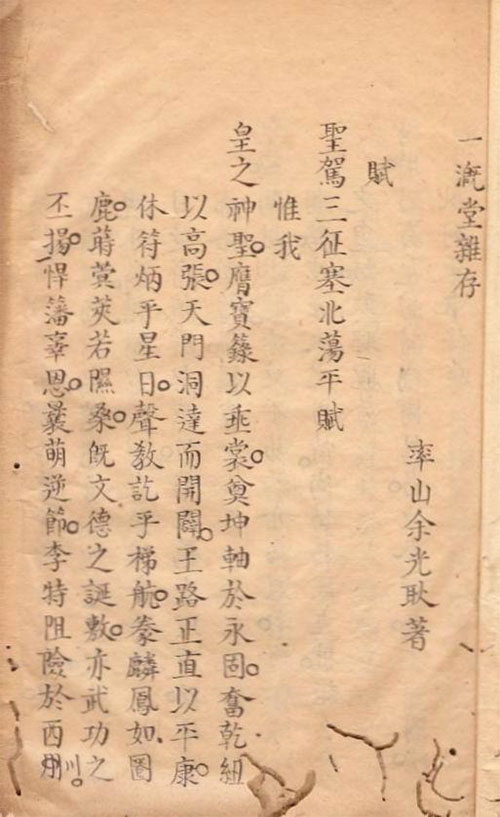 一漑堂雜存
率山余光耿著
賦
聖駕三征塞北蕩平賦
惟我
皇之神聖。膺寶籙以垂裳。奠坤軸於永固。奮乾組
以高張。天門洞達而開闢。王路正直以平康。
休符炳乎星日。聲教訖乎梯航。豢麟鳳如
鹿。蒔蓂莢若隰桑。既文德之誕敷。亦武功之
丕揚。悍藩辜恩。曩萌逆節。李特阻險於西川。